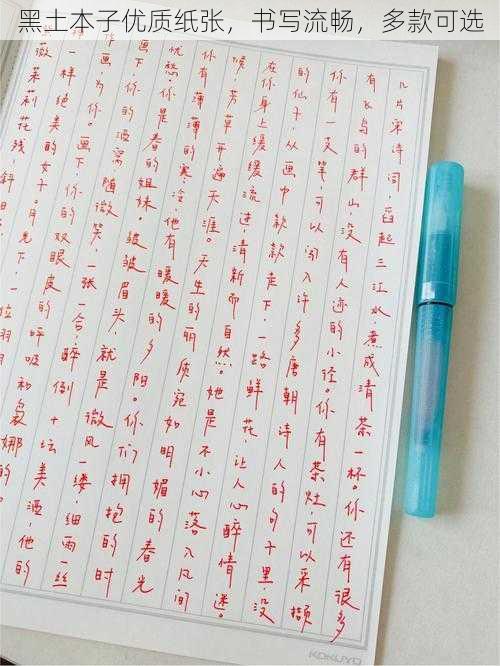 黑土本子优质纸张，书写流畅，多款可选
几片宋诗词，舀起三江水，煮成清茶一杯。你还有很多
有飞鸟的群山，没有人迹的小径。你有茶灶，可以采撷
你有一支笔，可以闯入许多唐朝诗人的句子里，没
的仙子，从画中款款走下，一路鲜花，让人心醉情迷。
在你身上缓缓流进，清新而自然。她是不小心落入凡间
候，芳草开遍天涯。天生的丽质宛如明媚的春光
有薄薄的寒冷，他有暖暖的夕阳。你们拥抱的时
忧愁。你是春的姐妹。皱皱眉头，就是微风一缕，细雨一丝
开，为你。你的酒窝，随微笑，一张一合，醉倒十坛美酒，他的
一样绝美的女子。月画下，你的双眼皮的呼吸和袅娜的
KOKUYO